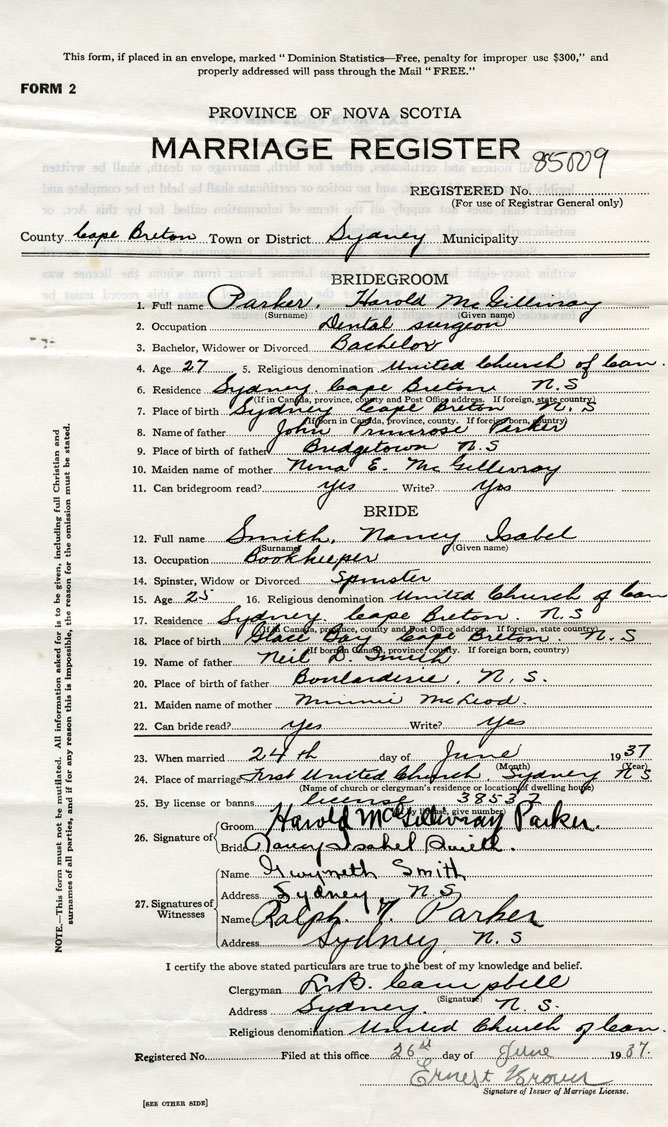 This form, if placed in an envelope, marked "Dominion Statistics—Free, penalty for improper use $300," and
properly addressed will pass through the Mail "FREE."
FORM 2
PROVINCE OF NOVA SCOTIA
MARRIAGE REGISTER 85809
REGISTERED No.
(For use of Registrar General only)
County Cape Breton Town or District Sydney Municipality
BRIDEGROOM
1. Full name Parker, Harold McGillivray
(Surname) (Given name)
2. Occupation Dental surgeon
3. Bachelor, Widower or Divorced Bachelor
4. Age 27 5. Religious denomination United Church of Can.
6. Residence Sydney Cape Breton N.S
(If in Canada, province, county and Post Office address. If foreign, state country)
7. Place of birth Sydney Cape Breton N.S
(If born in Canada, province, county. If foreign born, country)
8. Name of father John Primrose Parker
9. Place of birth of father Bridgetown N.S
10. Maiden name of mother Nina E. McGillivray
11. Can bridegroom read? yes Write? yes
BRIDE
12. Full name Smith, Nancy Isabel
(Surname) (Given name)
13. Occupation Bookkeeper
14. Spinster, Widow or Divorced Spinster
15. Age 25 16. Religious denomination United Church of Can
17. Residence Sydney Cape Breton N.S
(If in Canada, province, county and Post Office address. If foreign, state country)
18. Place of birth Glace Bay Cape Breton N.S
(If born in Canada, province, county. If foreign born, country)
19. Name of father Neil D. Smith
20. Place of birth of father Boularderie, N.S.
21. Maiden name of mother Minnie McLeod.
22. Can bride read? yes Write? yes
23. When married 24th day of June 1937
(Month) (Year)
24. Place of marriage First United Church, Sydney N S
(Name of church or clergyman's residence or location of dwelling house)
25. By license or banns license 38537
(If by license, give number)
26. Signature of Groom Harold McGillivray Parker.
Bride Nancy Isabel Smith.
27. Signatures of Witnesses
Name Gwyneth Smith
Address Sydney N.S
Name Ralph Parker
Address Sydney, N.S
I certify the above stated particulars are true to the best of my knowledge and belief.
Clergyman Campbell
(Signature)
Address Sydney. N.S.
Religious denomination United Church of Can.
Registered No. Filed at this office 26 day of June 1937.
Ernest
Signature of Issuer of Marriage License.
[SEE OTHER SIDE]
NOTE.—This form must not be mutilated. All information asked for is to be given, including full Christian and
surnames of all parties, and if for any reason this is impossible, the reason for the omission must be stated.